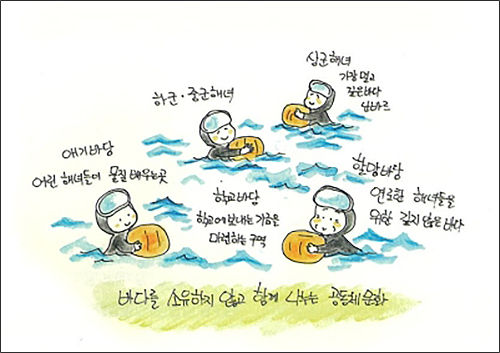 상군해녀
가장 멀고
깊은바다
하군·중군해녀
애기바당
어린 해녀들이 물질 배우는곳
할망바당
연로한 해녀들을
위한 깊지 않은 바다
학교바당
학교에 보내는 기금을
마련하는 구역
바다를 소유하지 않고 함께 나누는 공동체